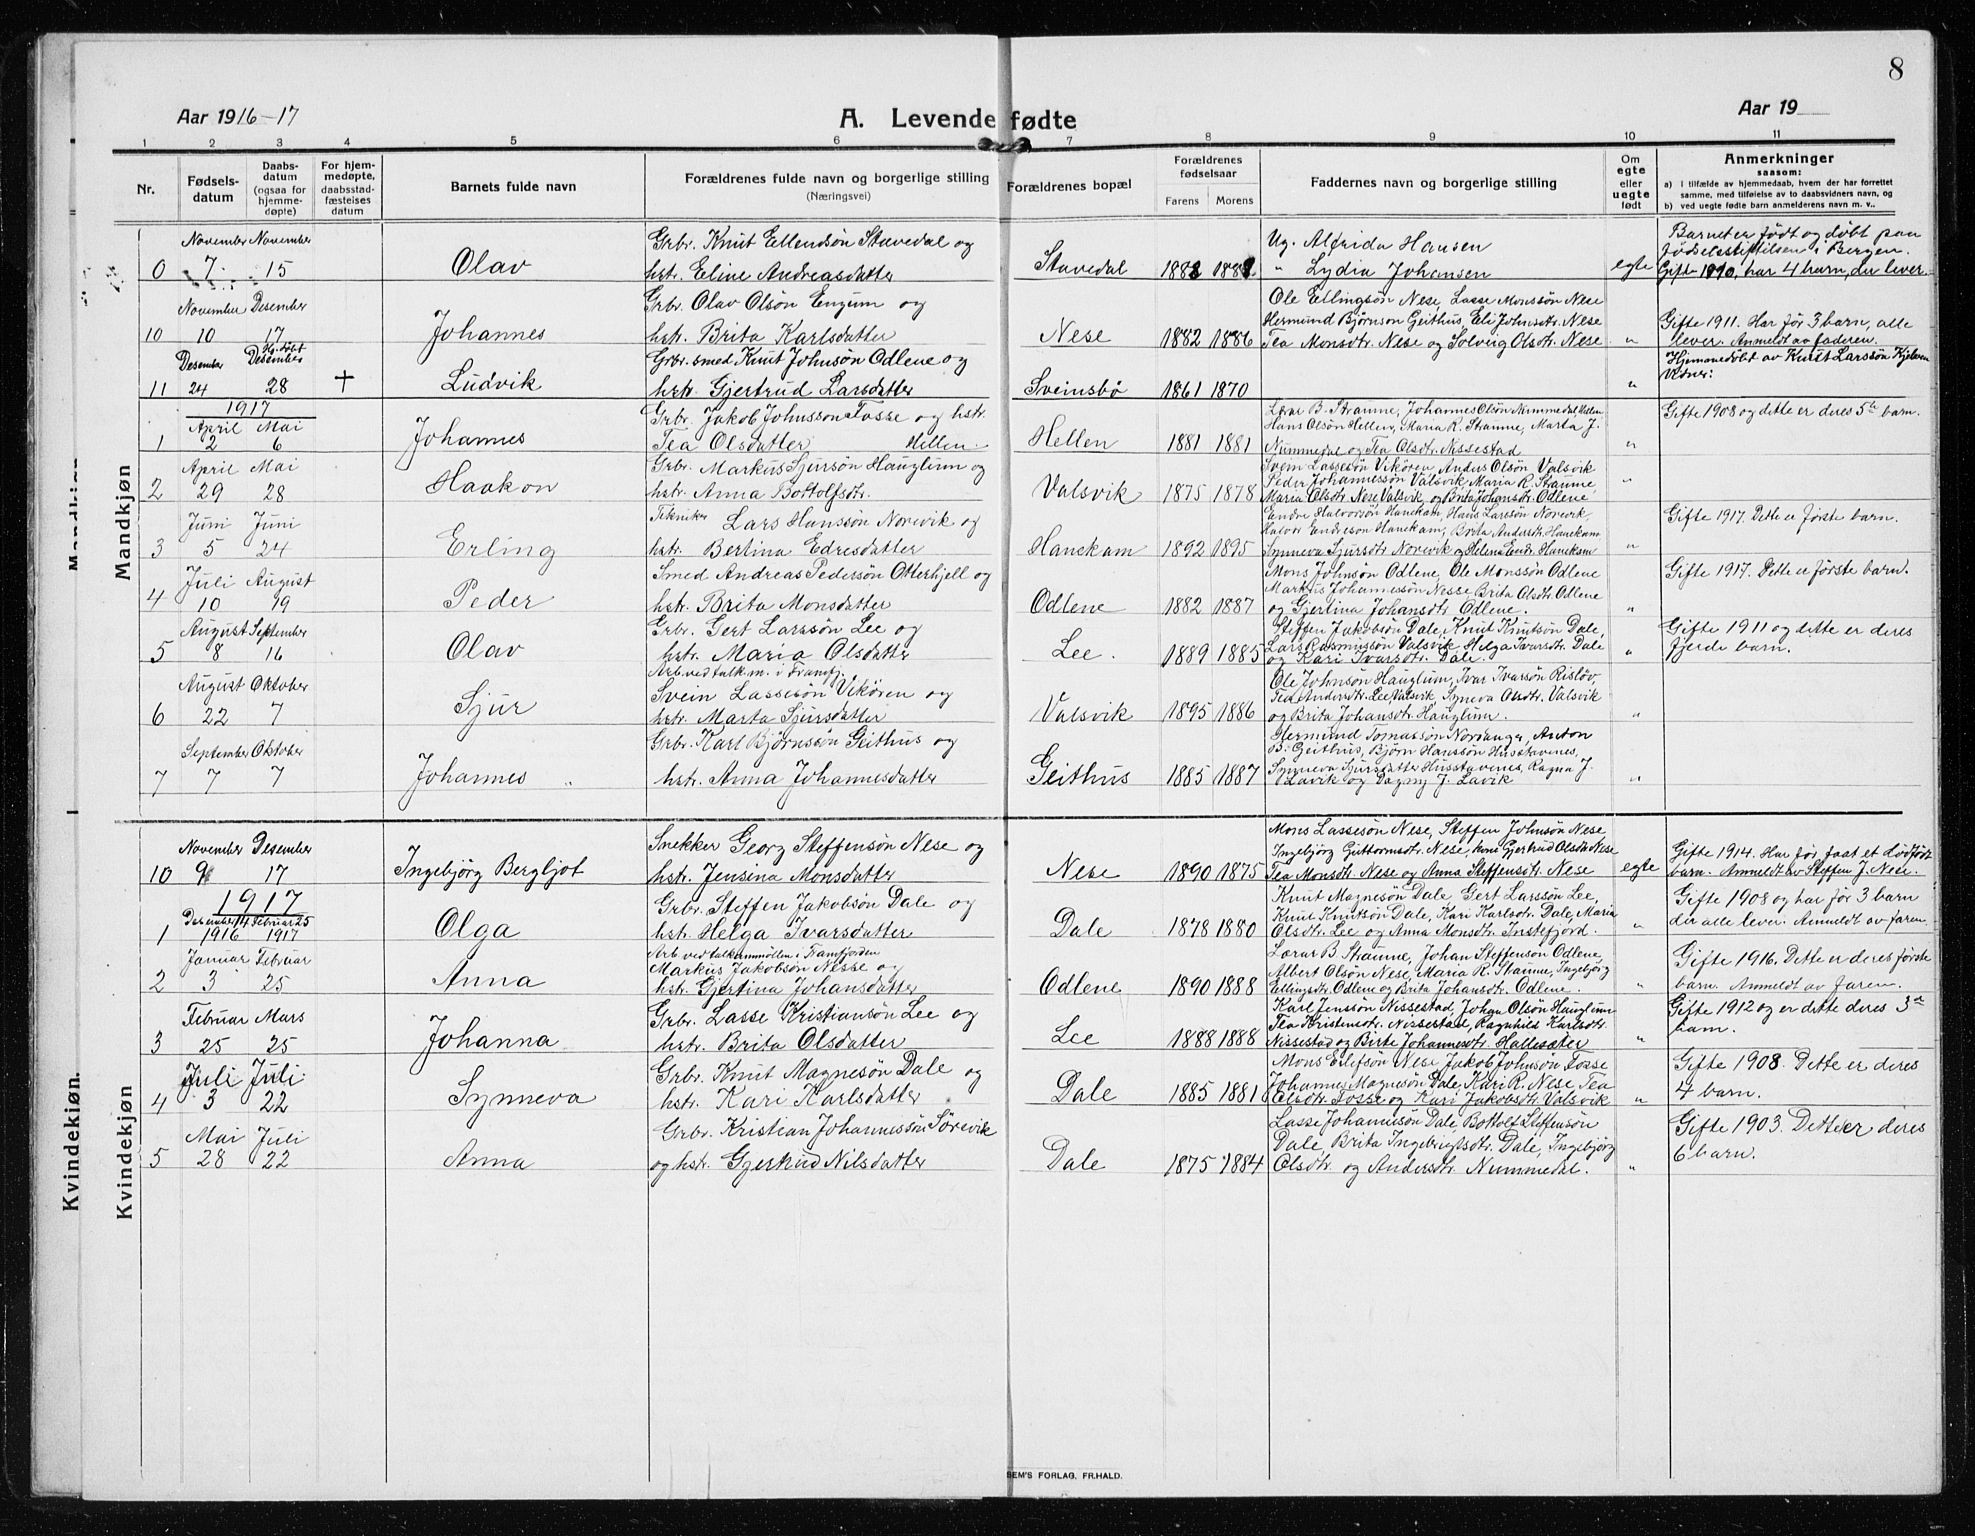 8
Aar 1916-17
A. Levende fødte
Aar 19
1 2 3 4 5 6 7 8 9 10 11
Nr.
Fødsels-
datum
Daabs-
datum
(ogsaa for
hjemme-
døpte)
For hjem-
medøpte,
daabsstad-
fæstelses
datum
Barnets fulde navn
Forældrenes fulde navn og borgerlige stilling
(Næringsvei)
Forældrenes bopæl
Forældrenes
fødselsaar
Farens Morens
Faddernes navn og borgerlige stilling
Om
egte
eller
uegte
født
Anmerkninger
saasom:
a) I tilfælde av hjemmedaab, hvem der har forrettet
samme, med tilføielse av to daabsvidners navn, og
b) ved uegte fødte barn anmelderens navn m. v..
Mandkjøn
November November Grbr. Knut Ellendsön Stavedal og Ug. Alfrida Hansen Barnet er født og døbt paa
Fødselsstiftelsen i Bergen.
0 7 15 Olav hstr. Eline Andreasdatter Stavedal 1888 1888 " Lydia Johansen egte Gifte 1910, har 4 barn, der lever.
November Desember Grbr. Olav Olsön Engum og Ole Ellingsön Nese, Lasse Monssön Nese
Hermund Björnson Geithus, Eli Johnsdtr. Nese Gifte 1911. Har før 3 barn, alle
10 10 17 Johannes hstr. Brita Karlsdatter Nese 1882 1886 Tea Monsdtr. Nese og Solvug Olsdtr. Nese " lever. Anmeldt av faderen.
Desember Hj. døbt Desember Grbr. smed Knut Johnsön Odlene og Hjemmedøbt av Knut Larssön Kjelven
11 24 28 + Ludvik hstr. Gjertrud Larsdatter Sveinsbö 1861 1870 " Vidner:
1917
April Mai Grbr. Jakob Johnsson Fosse og hstr. Lærar B. Straume, Johannes Olsön Nummedal Hellen, Gifte 1908 og dette er deres 5te barn.
Hans Olsön Hellen, Maria R. Straume, Marta J.
1 2 6 Johannes Tea Olsdatter Hellen Hellen 1881 1881 Nummedal og Tea Olsdtr. Nissestad "
April Mai Grbr. Markus Sjursön Hauglum og Svein Lassesön Vikören, Anders Olsön Valsvik
Peder Johannesson Valsvik, Maria R. Straume,
2 29 28 Haakon hstr. Anna Bottolfsdtr. Valsvik 1875 1878 Maria Olsdtr. Nese Valsvik og Brita Johansdtr. Odlene "
Juni Juni Tekniker Lars Hanssön Norevik og Endre Halvorsön Hanekam, Hans Larssön Norevik, Gifte 1917. Dette er første barn.
Halvor Endreson Hanekam, Brita Andersdtr. Hanekam
3 5 24 Erling hstr. Bertina Edresdatter Hanekam 1892 1895 Synneva Sjursdtr. Norevik og Helene Endr. Hanekam "
Juli August Smed Andreas Pedersön Otterhjell og Mons Johnsön Odlene, Ole Monssön Odlene Gifte 1917. Dette er første barn.
Markus Johannesson Nesse, Brita Olsdtr. Odlene
4 10 19 Peder hstr. Brita Monsdatter Odlene 1882 1887 og Gjertina Johansdtr. Odlene. "
August September Grbr. Gert Larssön Lee og Steffen Jakobsön Dale, Knut Knutsön Dale, Gifte 1911 og dette er deres
Lars Rasmussön Valsvik, Helga Ivarsdtr. Dale
5 8 16 Olav hstr. Maria Olsdatter Lee. 1889 1885 og Kari Ivarsdtr. Dale. " fjerde barn.
Arb. ved talk.m. i Framfj.
August Oktober Svein Lassesön Vikören og Ole Johnsön Hauglum, Ivar Ivarsön Rislöv,
Tea Andersdtr. Lee, Valsvik, Syneva Olsdtr. Valsvik
6 22 7 Sjur hstr. Marta Sjursdatter Valsvik 1895 1886 og Brita Johansdtr. Hauglum. "
September Oktober Grbr. Karl Björnssön Geithus og Hermund Tomassön Nordanger, Anton
B. Geithus, Björn Hanssön Husstavenes,
7 7 7 Johannes hstr. Anna Johannesdatter Geithus 1885 1887 Synneva Sjursdatter Husstavenes, Ragna J.
Lavik og Dagny J. Lavik "
Kvindekjøn
November Desember Snekker Georg Steffensön Nese og Mons Lassesön Nese, Steffen Johnsön Nese
Ingebjörg Guttormsdt. Nese, kone Gjertrud Olsdtr. Nese Gifte 1914. Har før faat et dødfødt
10 9 17 Ingebjörg Bergljot hstr. Jensina Monsdatter Nese 1890 1875 Tea Monsdtr. Nese og Anna Steffensdtr. Nese egte barn. Anmeldt av Steffen J. Nese.
1917
Desember 14 Februar 25 Grbr. Steffen Jakobsön Dale og Knut Magnesön Dale, Gert Larssön Lee, Gifte 1908 og har før 3 barn
Knut Knutsön Dale, Kari Karlsdtr. Dale, Maria
1 1916 1917 Olga hstr. Helga Ivarsdatter Dale 1878 1880 Olsdtr. Lee og Anna Monsdtr. Instefjord. " der alle lever. Anmeldt av faren.
Arb. ved talkummöllen i Framfjorden
Januar Februar Markus Jakobsön Nesse og Lærar B. Straume, Johan Steffenson Odlene, Gifte 1916. Dette er deres første
Albert Olsön Nese, Maria R. Staume, Ingebjörg
2 3 25 Anna hstr. Gjertina Johansdatter Odlene 1890 1888 Ellingsdtr. Odlene og Brita Johansdtr. Odlene. " barn. Anmeldt av faren.
Februar Mars Grbr. Lasse Kristiansön Lee og Karl Jenssön Nissestad, Johan Olsön Hauglum Gifte 1912 og er dette deres 3die
Tea Kristensdtr. Nissestad, Ragnhild Karlsdtr. barn.
3 25 25 Johanna hstr. Brita Olsdatter Lee 1888 1888 Nissestad og Birte Johannesdtr. Hallesæter "
Juli Juli Grbr. Knut Magnesön Dale og Mons Eilefsön Nese, Jakob Johnsön Fosse Gifte 1908. Dette er deres
Johannes Magnesön Dale, Kari R. Nese, Tea
4 3 22 Synneva hstr. Kari Karlsdatter Dale 1885 1881 Olsdtr. Fosse og Kari Jakobsdtr. Valsvik " 4 barn.
Mai Juli Grbr. Kristian Johannessön Sörevik Lasse Johannesön Dale, Bottolf Steffensön Gifte 1903. Dette er deres
Dale, Brita Ingebrigtsdtr. Dale, Ingebjörg
5 28 22 Anna og hstr. Gjertrud Nilsdatter Dale 1875 1884 Olsdtr. og Andersdtr. Nummedal. " 6 barn.
Kvindekjøn.
SEM'S FORLAG, FR.HALD.